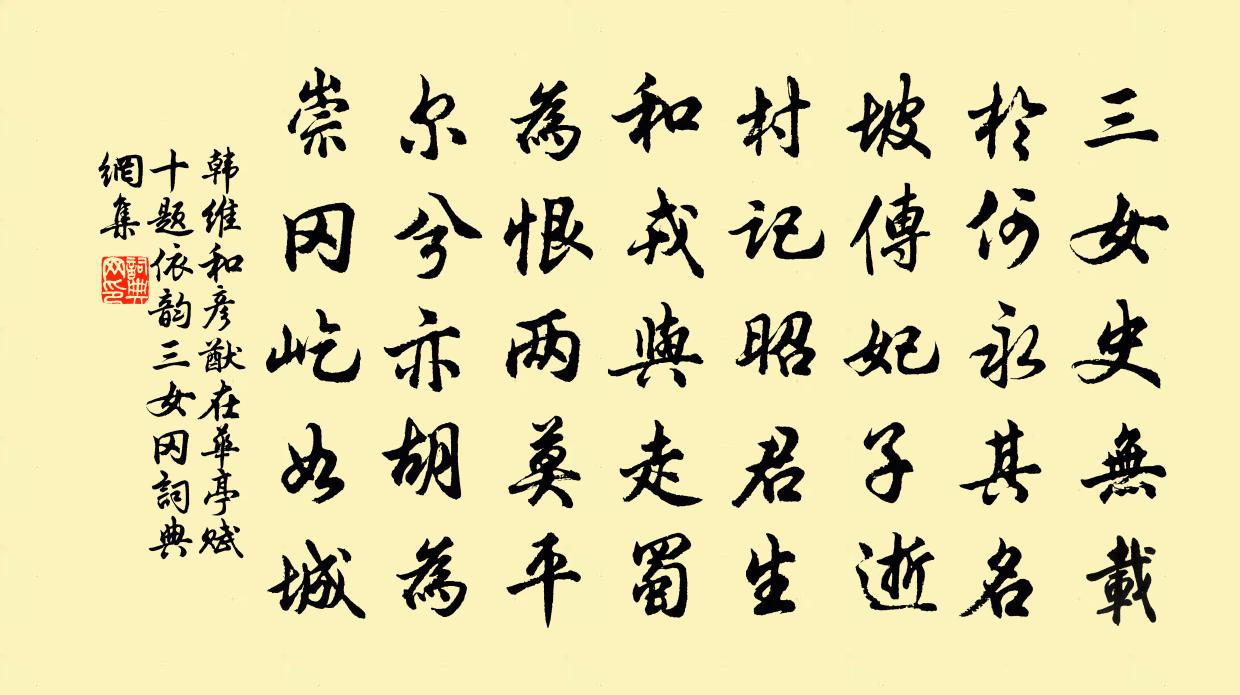 三女史無載
於何永其名
坡傳妃子逝
村記昭君生
和戎與走蜀
為恨两莫平
尔兮亦胡為
崇冈屹如城
韩维和彦猷在華亭赋
十题依韵三女冈詞典
網集
詞典
网印